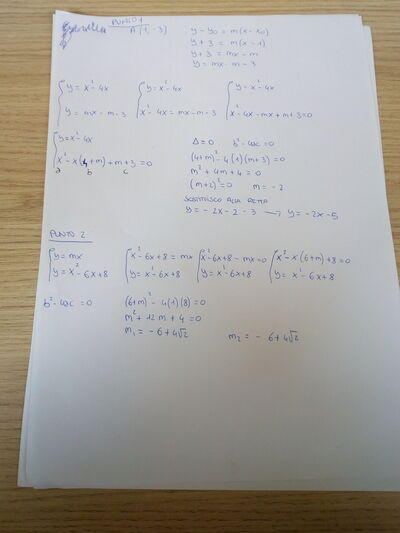 PUNTO 1
A(1, -3)
y - y₀ = m(x - x₀)
y + 3 = m(x - 1)
y + 3 = mx - m
y = mx - m - 3
{ y = x² - 4x
y = mx - m - 3
{ y = x² - 4x
x² - 4x = mx - m - 3
{ y = x² - 4x
x² - 4x - mx + m + 3 = 0
{ y = x² - 4x
x² - x(4 + m) + m + 3 = 0
a b c
Δ = 0 b² - 4ac = 0
(4+m)² - 4(1)(m+3) = 0
m² + 4m + 4 = 0
(m+2)² = 0 m = -2
SOSTITUISCO ALLA RETTA
y = -2x - 2 - 3 → y = -2x - 5
PUNTO 2
{ y = mx
y = x² - 6x + 8
{ x² - 6x + 8 = mx
y = x² - 6x + 8
{ x² - 6x + 8 - mx = 0
y = x² - 6x + 8
{ x² - x(6+m) + 8 = 0
y = x² - 6x + 8
b² - 4ac = 0
(6+m)² - 4(1)(8) = 0
m² + 12m + 4 = 0
m₁ = -6 + 4√2 m₂ = - 6 + 4√2